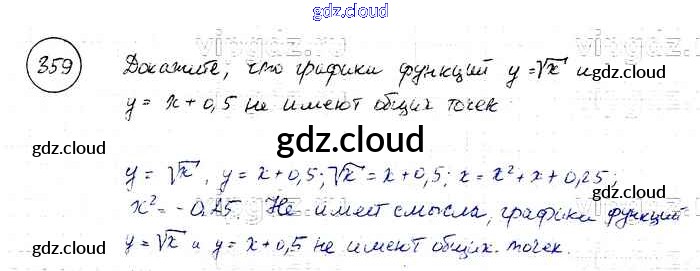 gdz.cloud
359 Докажите, что графики функций y = √x и
y = x + 0,5 не имеют общих точек.
gdz.cloud
gdz.cloud
gdz.cloud
gdz.cloud
gdz.cloud
y = √x, y = x + 0,5; √x = x + 0,5; x = x² + x + 0,25;
x² = - 0,25. Не имеет смысла, графики функций
y = √x и y = x + 0,5 не имеют общих точек.
gdz.cloud
gdz.cloud